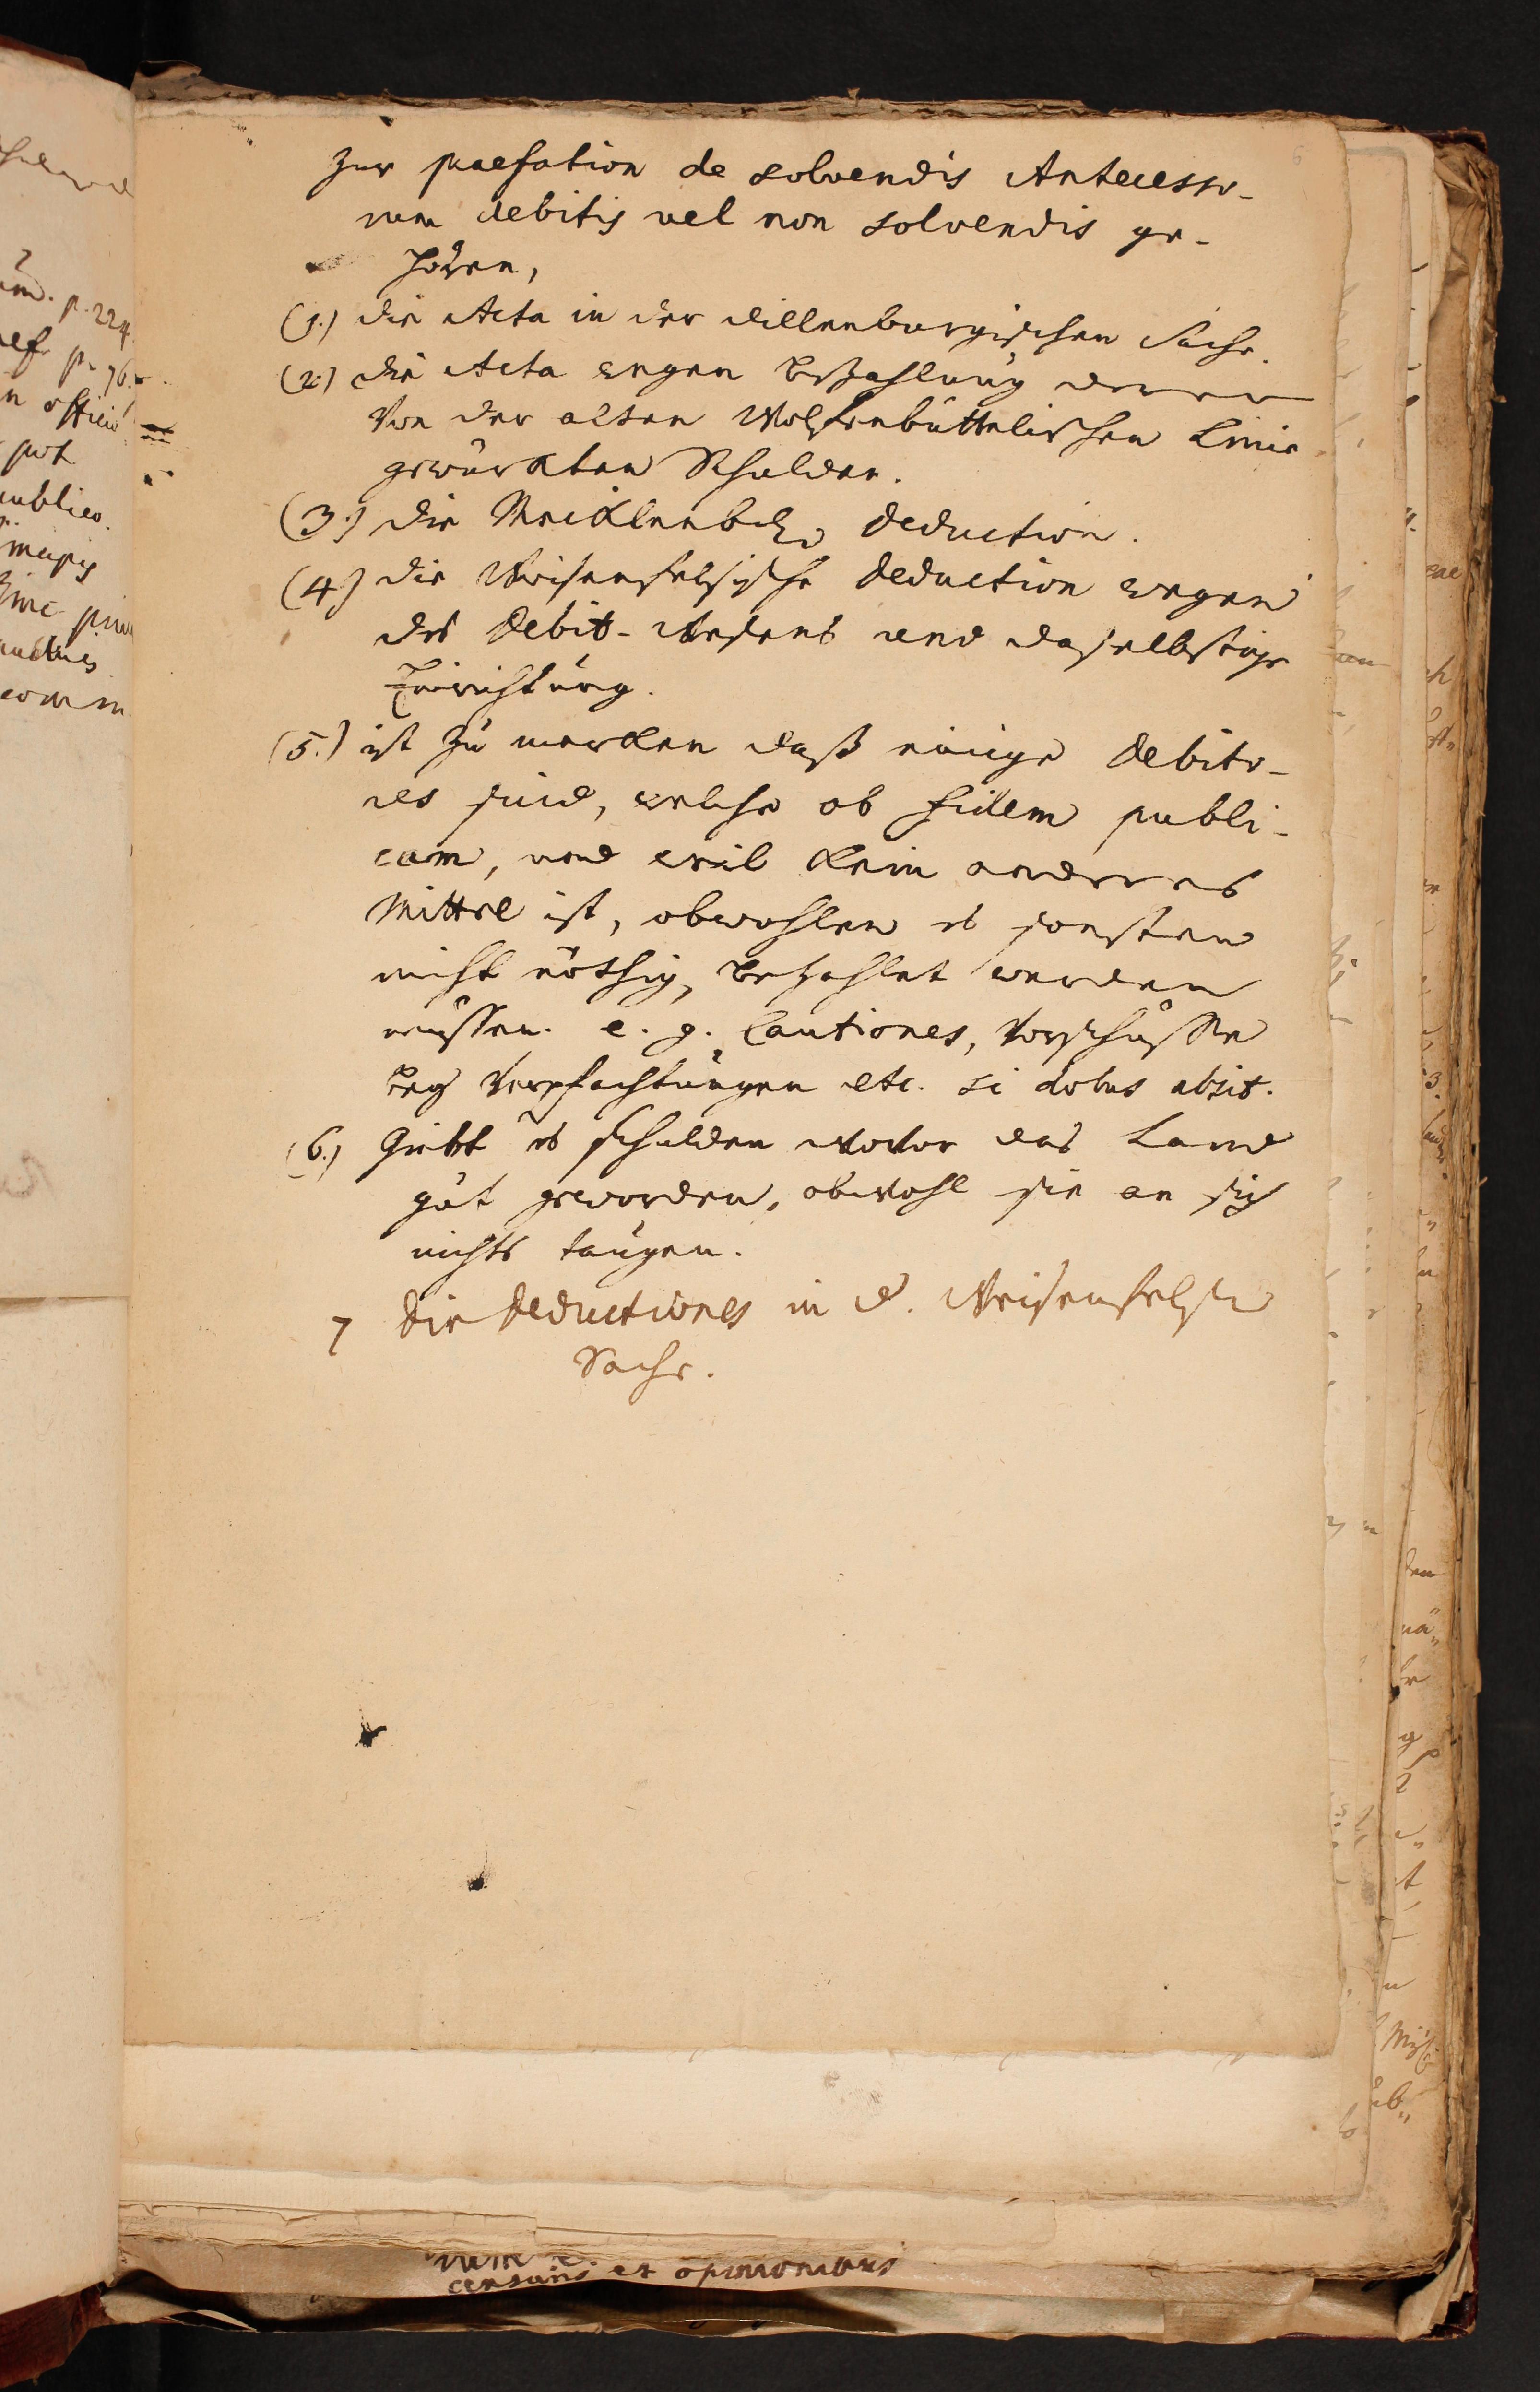 zur praefation de solvendis Antecesso-
rum debitis vel non solvendis ge-
hören,
(1.) die Acta in der dillenburgischen Sache.
(2.) die Acta wegen Bezahlung derer
von der alten Wolfenbüttelischen Linie
gewürckten Schulden.
(3.) die Mecklenb. deduction.
(4) die Weisenfelsische deduction wegen
des Debit-Wesens und daselbstige
Einrichtung.
(5.) ist zu mercken daß einige debito-
res sind, welche ob fidem publi-
cam, und weil kein anderes
Mittel ist, obwohlen es sonsten
nicht nöthig, bezahlet werden
müssen. e. g. Cautiones, Vorschüsse
bey Verpfachtungen etc. si dolus absit.
(6.) Giebt es schulden wovor das Land
gut geworden, obwohl sie an sich
nichts taugen.
7 die deductiones in d. Weisenfels.
Sache.
p. 224
p. 76.
publico.
comm.
et opinionibus